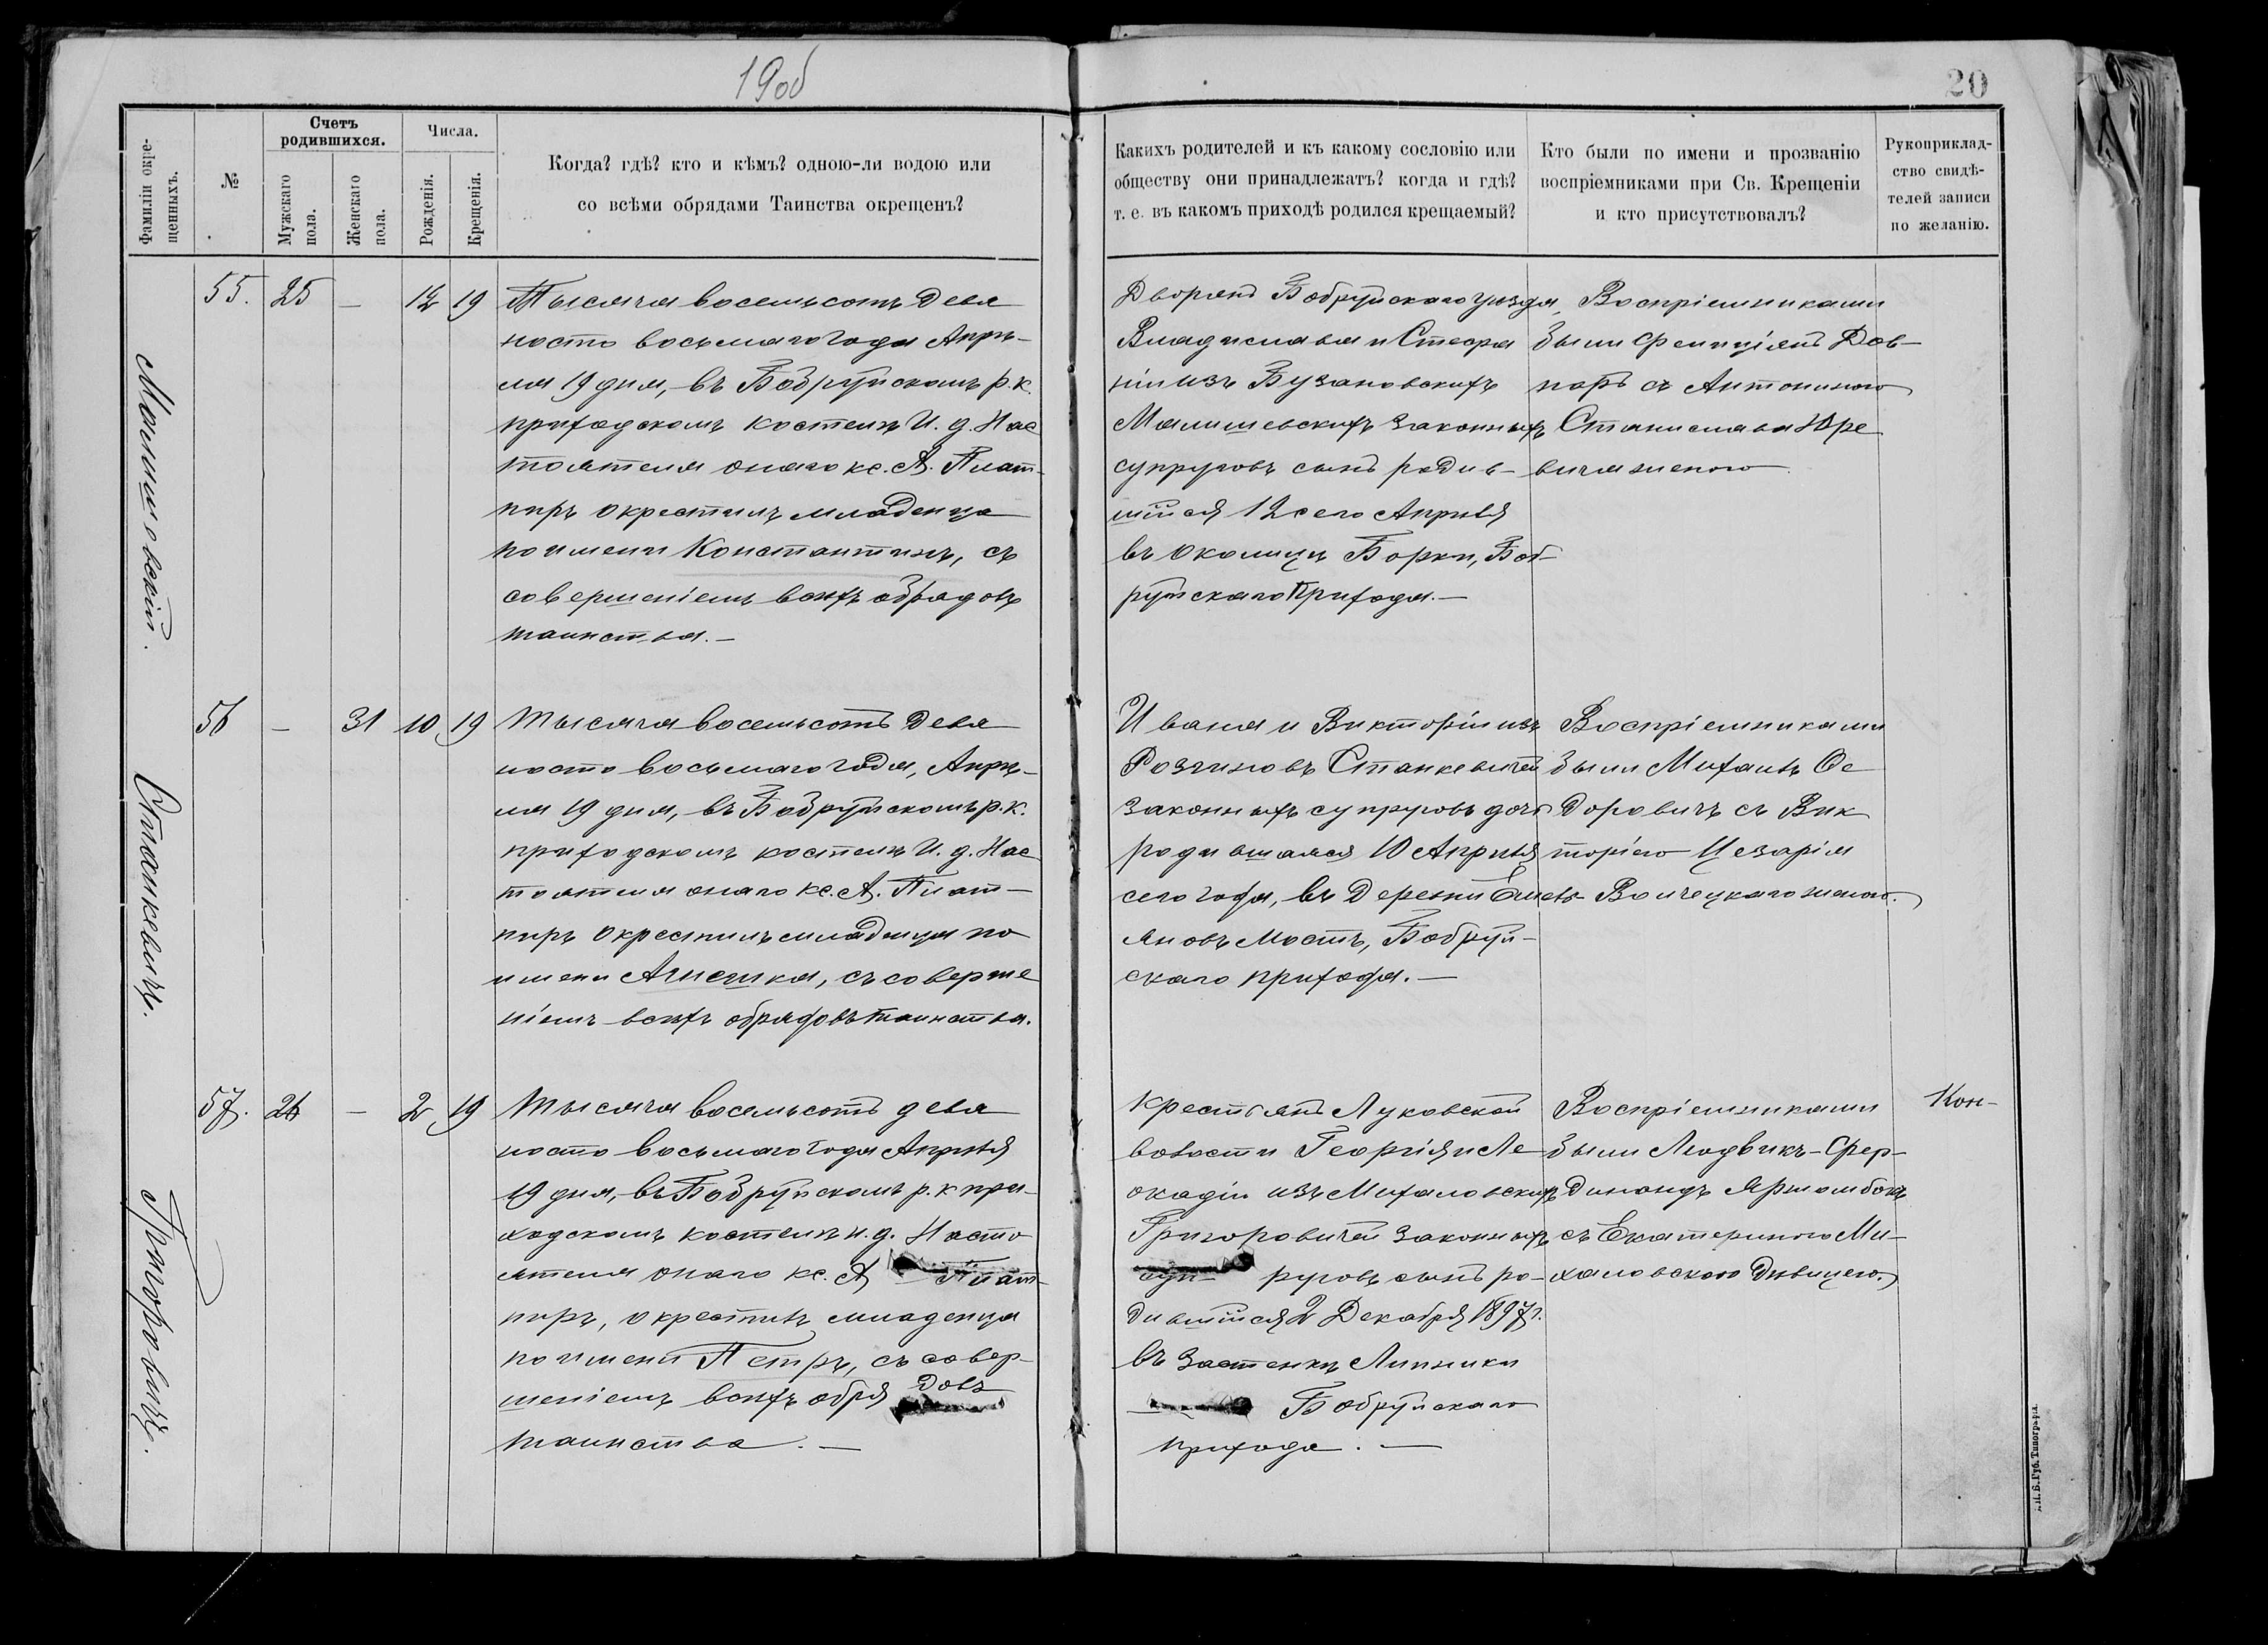 19об
20
Фамиліи окре-
щенныхъ.
№
Счетъ
родившихся.
Мужскаго
пола.
Женскаго
пола.
Числа.
Рожденія.
Крещенія.
Когда? гдѣ? кто и кѣмъ? одною-ли водою или
со всѣми обрядами Таинства окрещенъ?
Какихъ родителей и къ какому сословію или
обществу они принадлежатъ? когда и гдѣ?
т. е. въ какомъ приходѣ родился крещаемый?
Кто были по имени и прозванію
воспріемниками при Св. Крещеніи
и кто присутствовалъ?
Рукоприклад-
ство свидѣ-
телей записи
по желанію.
Малишевскій.
55. 25 — 12 19
Тысяча восемьсотъ девя
носто восьмаго года Апрѣ-
ля 19 дня, въ Бобруйскомъ р. к.
приходскомъ костелѣ И. д. Нас
тоятеля онаго кс. А. Плат-
пиръ окрестилъ младенца
по имени Константинъ, съ
совершеніемъ всѣхъ обрядовъ
таинства. —
Дворянъ Бобруйскаго уѣзда,
Владислава и Стефа
ніи изъ Бузановскихъ
Малишевскихъ законныхъ
супруговъ сынъ родив-
шійся 12 сего Апрѣля
въ околицѣ Борки, Боб-
руйскаго Прихода. —
Воспріемниками
были Фелиціянъ Дов-
наръ съ Антониною
Станислава Юре
вича женою
Станкевичъ.
56 — 31 10 19
Тысяча восемьсотъ девя
носто восьмаго года, Апрѣ-
ля 19 дня, въ Бобруйскомъ р. к.
приходскомъ костелѣ И. д. Нас
тоятеля онаго кс. А. Плат-
пиръ окрестилъ младенца по
имени Агнешка, съ соверше
ніемъ всѣхъ обрядовъ таинства.
Ивана и Викторіи изъ
Розгиновъ Станкевичей
законныхъ супруговъ дочь
родившаяся 10 Апрѣля
сего года, въ Деревни Емель-
яновъ Мостъ, Бобруй-
скаго прихода. —
Воспріемниками
были Михаилъ Ѳе
доровичъ съ Вик
торіею Цезарія
Войчецкаго женою.
Григоровичъ.
57. 26 — 2 19
Тысяча восемьсотъ девя
носто восьмаго года Апрѣля
19 дня, въ Бобруйскомъ р. к при-
ходскомъ костелѣ и. д. Насто
ятеля онаго кс. А Плат-
пиръ, окрестилъ младенца
по имени Петръ, съ совер-
шеніемъ всѣхъ обря довъ
таинства. —
Крестьянъ Луковской
волости Георгія и Ле
окадіи изъ Михаловскихъ
Григоровичей законныхъ
суп руговъ сынъ ро-
дившійся 2 Декабря 1897 г.
въ застенкѣ Липники
Бобруйскаго
прихода. —
Воспріемниками
были Людвикъ-Фер-
динандъ Ярмомбокъ
съ Екатериною Ми-
халовскою дѣвицею.
Кон-
М. Б. Губ. Типографія.